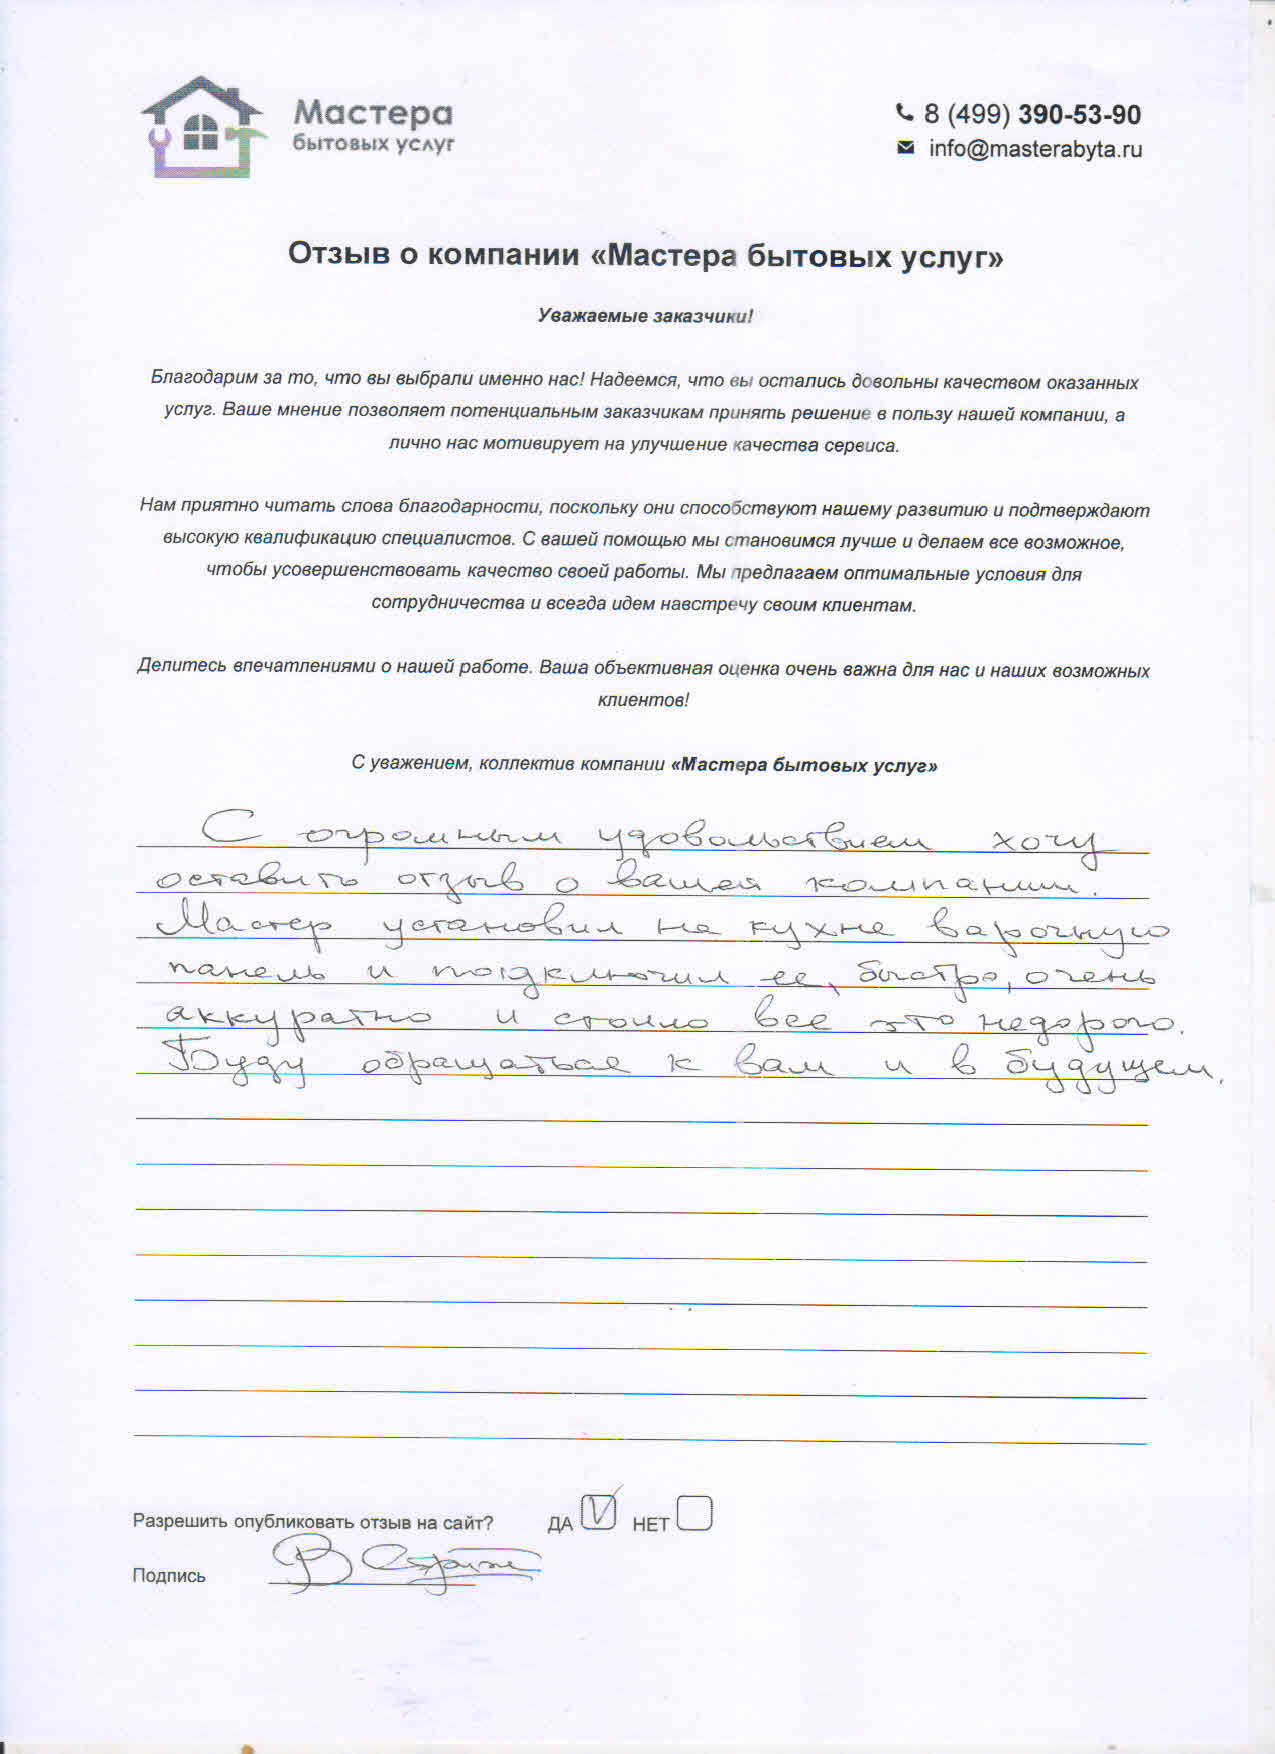 Мастера
бытовых услуг
8 (499) 390-53-90
info@masterabyta.ru
Отзыв о компании «Мастера бытовых услуг»
Уважаемые заказчики!
Благодарим за то, что вы выбрали именно нас! Надеемся, что вы остались довольны качеством оказанных
услуг. Ваше мнение позволяет потенциальным заказчикам принять решение в пользу нашей компании, а
лично нас мотивирует на улучшение качества сервиса.
Нам приятно читать слова благодарности, поскольку они способствуют нашему развитию и подтверждают
высокую квалификацию специалистов. С вашей помощью мы становимся лучше и делаем все возможное,
чтобы усовершенствовать качество своей работы. Мы предлагаем оптимальные условия для
сотрудничества и всегда идем навстречу своим клиентам.
Делитесь впечатлениями о нашей работе. Ваша объективная оценка очень важна для нас и наших возможных
клиентов!
С уважением, коллектив компании «Мастера бытовых услуг»
С огромным удовольствием хочу
оставить отзыв о вашей компании.
Мастер установил на кухне варочную
панель и подключил ее, быстро, очень
аккуратно и стоило все это недорого.
Буду обращаться к вам и в будущем.
Разрешить опубликовать отзыв на сайт? ДА НЕТ
Подпись